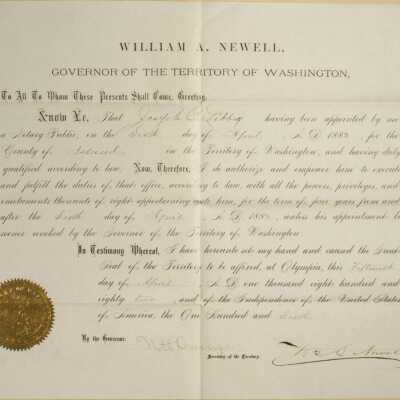 WILLIAM A. NEWELL,
GOVERNOR OF THE TERRITORY OF WASHINGTON,
To All To Whom These Presents Shall Come, Greeting:
Know Ye, That Joseph C. Libby having been appointed by me
a Notary Public, on the day of April A. D. 1882, for the
County of in the Territory of Washington, and having duly
qualified according to law, Now, Therefore, I do authorize and empower him to execute
and fulfill the duties of that office, according to law, with all the powers, privileges, and
emoluments thereunto of right appertaining unto him, for the term of four years from and
after the day of April A. D. 1882, unless his appointment be
sooner revoked by the Governor of the Territory of Washington.
In Testimony Whereof, I have hereunto set my hand and caused the Great
Seal of the Territory to be affixed, at Olympia, this
day of April A. D. one thousand eight hundred and
eighty two, and of the Independence of the United States
of America, the One Hundred and
By the Governor:
Secretary of the Territory.
Newell